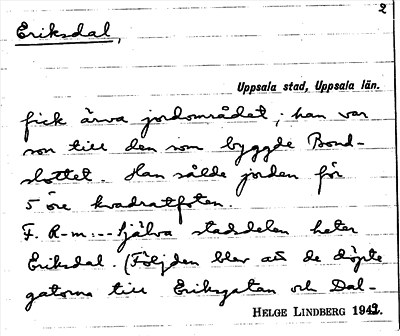 2
Eriksdal,
Uppsala stad, Uppsala län.
fick ärva jordområdet; han var
son till den som byggde Bond-
slottet. Han sålde jorden för
5 öre kvadratfoten.
F. R-m:-- Själva stadsdelen heter
Eriksdal. (Följden blev att de döpte
gatorna till Eriksgatan och Dal-
HELGE LINDBERG 1942.